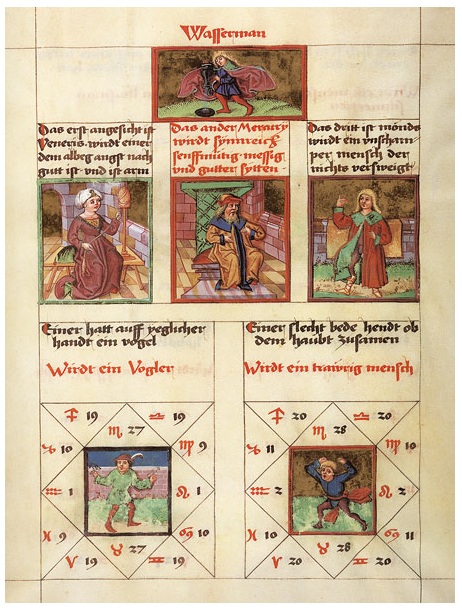 Wasserman
Das erst angesicht ist
Veneris wirdt einer
dem albeg angst nach
gutt ist vnd ist arm
Das ander Mercury
wirdt synnreich
senfftmütig messig
vnd gutter sytten
Das dritt ist mönds
wirdt ein vnscham
per mensch der
nichts versweigt
Einer hatt auff yeglicher
handt ein vogel
Wirdt ein Vogler
Einer slecht bede hendt ob
dem haubt zusamen
Wirdt ein trawrig mensch
♐ 19 ♎ 19
♏ 27
♑ 10 ♍ 9
♒ 1 ♌ 1
♓ 9 ♋ 10
♉ 27
♈ 19 ♊ 19
♐ 20 ♎ 20
♏ 28
♑ 11 ♍ 10
♒ 2 ♌ 2
♓ 10 ♋ 11
♉ 28
♈ 20 ♊ 20